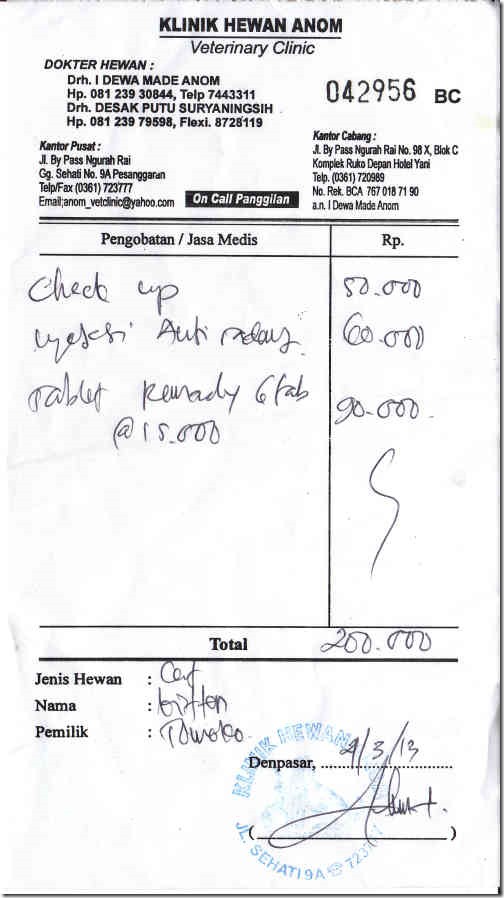 KLINIK HEWAN ANOM
Veterinary Clinic
DOKTER HEWAN :
Drh. I DEWA MADE ANOM
Hp. 081 239 30844, Telp 7443311
Drh. DESAK PUTU SURYANINGSIH
Hp. 081 239 79598, Flexi. 8728119
042956 BC
Kantor Pusat :
Jl. By Pass Ngurah Rai
Gg. Sehati No. 9A Pesanggaran
Telp/Fax (0361) 723777
Email;anom_vetclinic@yahoo.com
On Call Panggilan
Kantor Cabang :
Jl. By Pass Ngurah Rai No. 98 X, Blok C
Komplek Ruko Depan Hotel Yani
Telp. (0361) 720989
No. Rek. BCA 767 018 71 90
a.n. I Dewa Made Anom
Pengobatan / Jasa Medis Rp.
Check up 50.000
Anti 60.000
Tablet 6 tab 90.000
@ 15.000
Total 200.000
Jenis Hewan : Cat
Nama : kitten
Pemilik :
KLINIK HEWAN
Denpasar, 4/3/13
JL. SEHATI 9A ☎ 723777